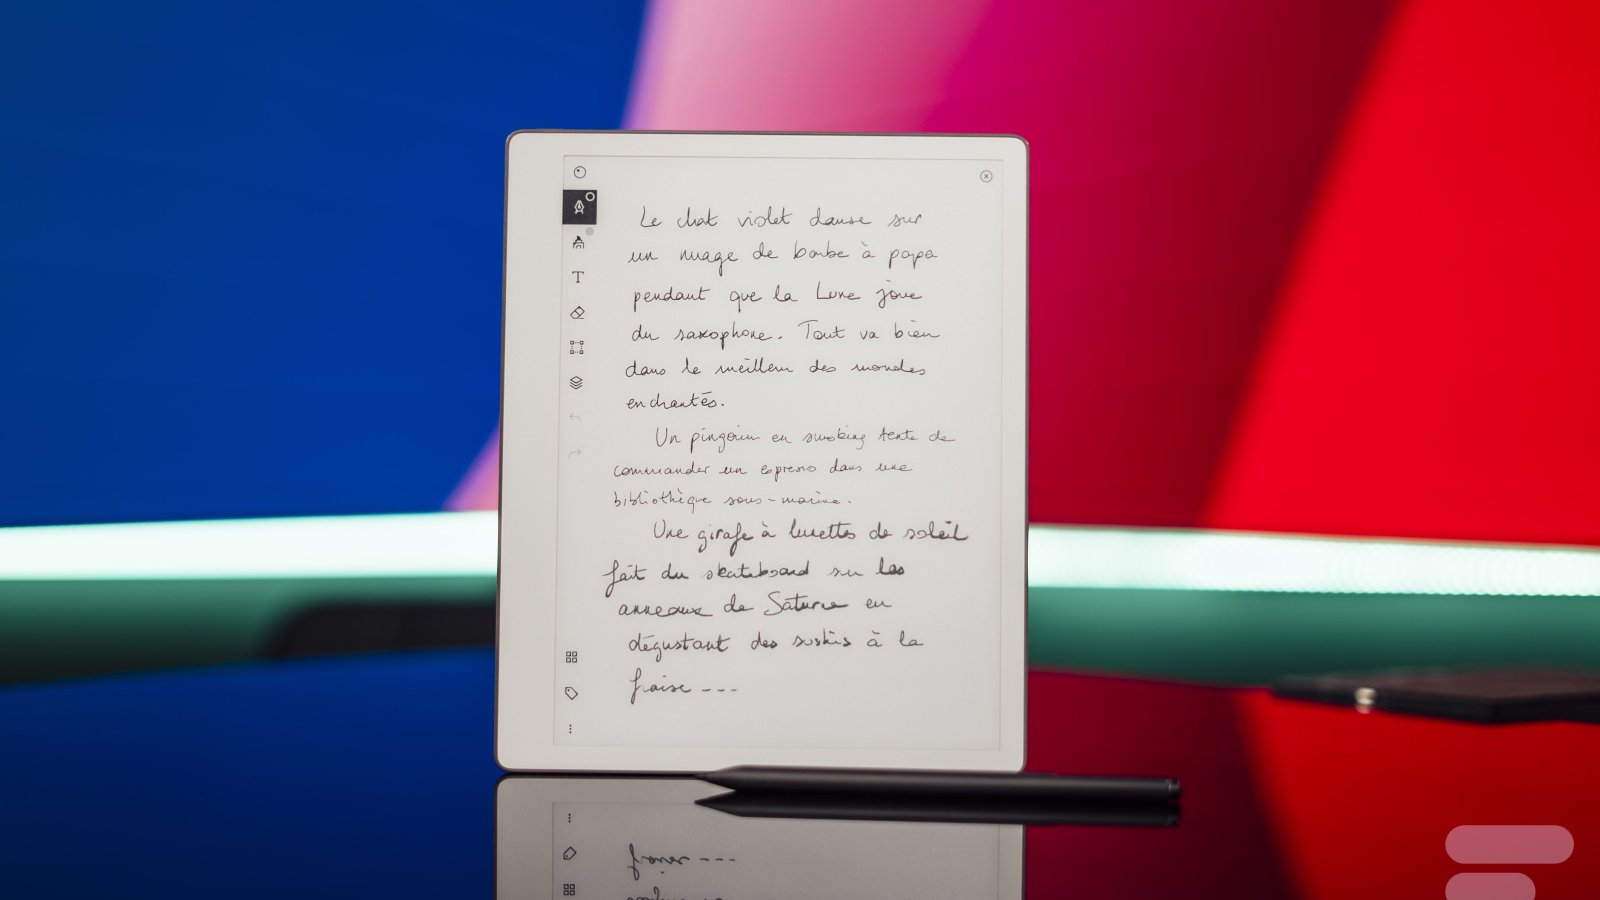 Le chat violet danse sur
un nuage de barbe à papa
pendant que la Lune joue
du saxophone. Tout va bien
dans le meilleur des mondes
enchantés.
Un pingouin en smoking tente de
commander un espresso dans une
bibliothèque sous-marine.
Une girafe à lunettes de soleil
fait du skateboard sur les
anneaux de Saturne en
dégustant des sushis à la
fraise ---